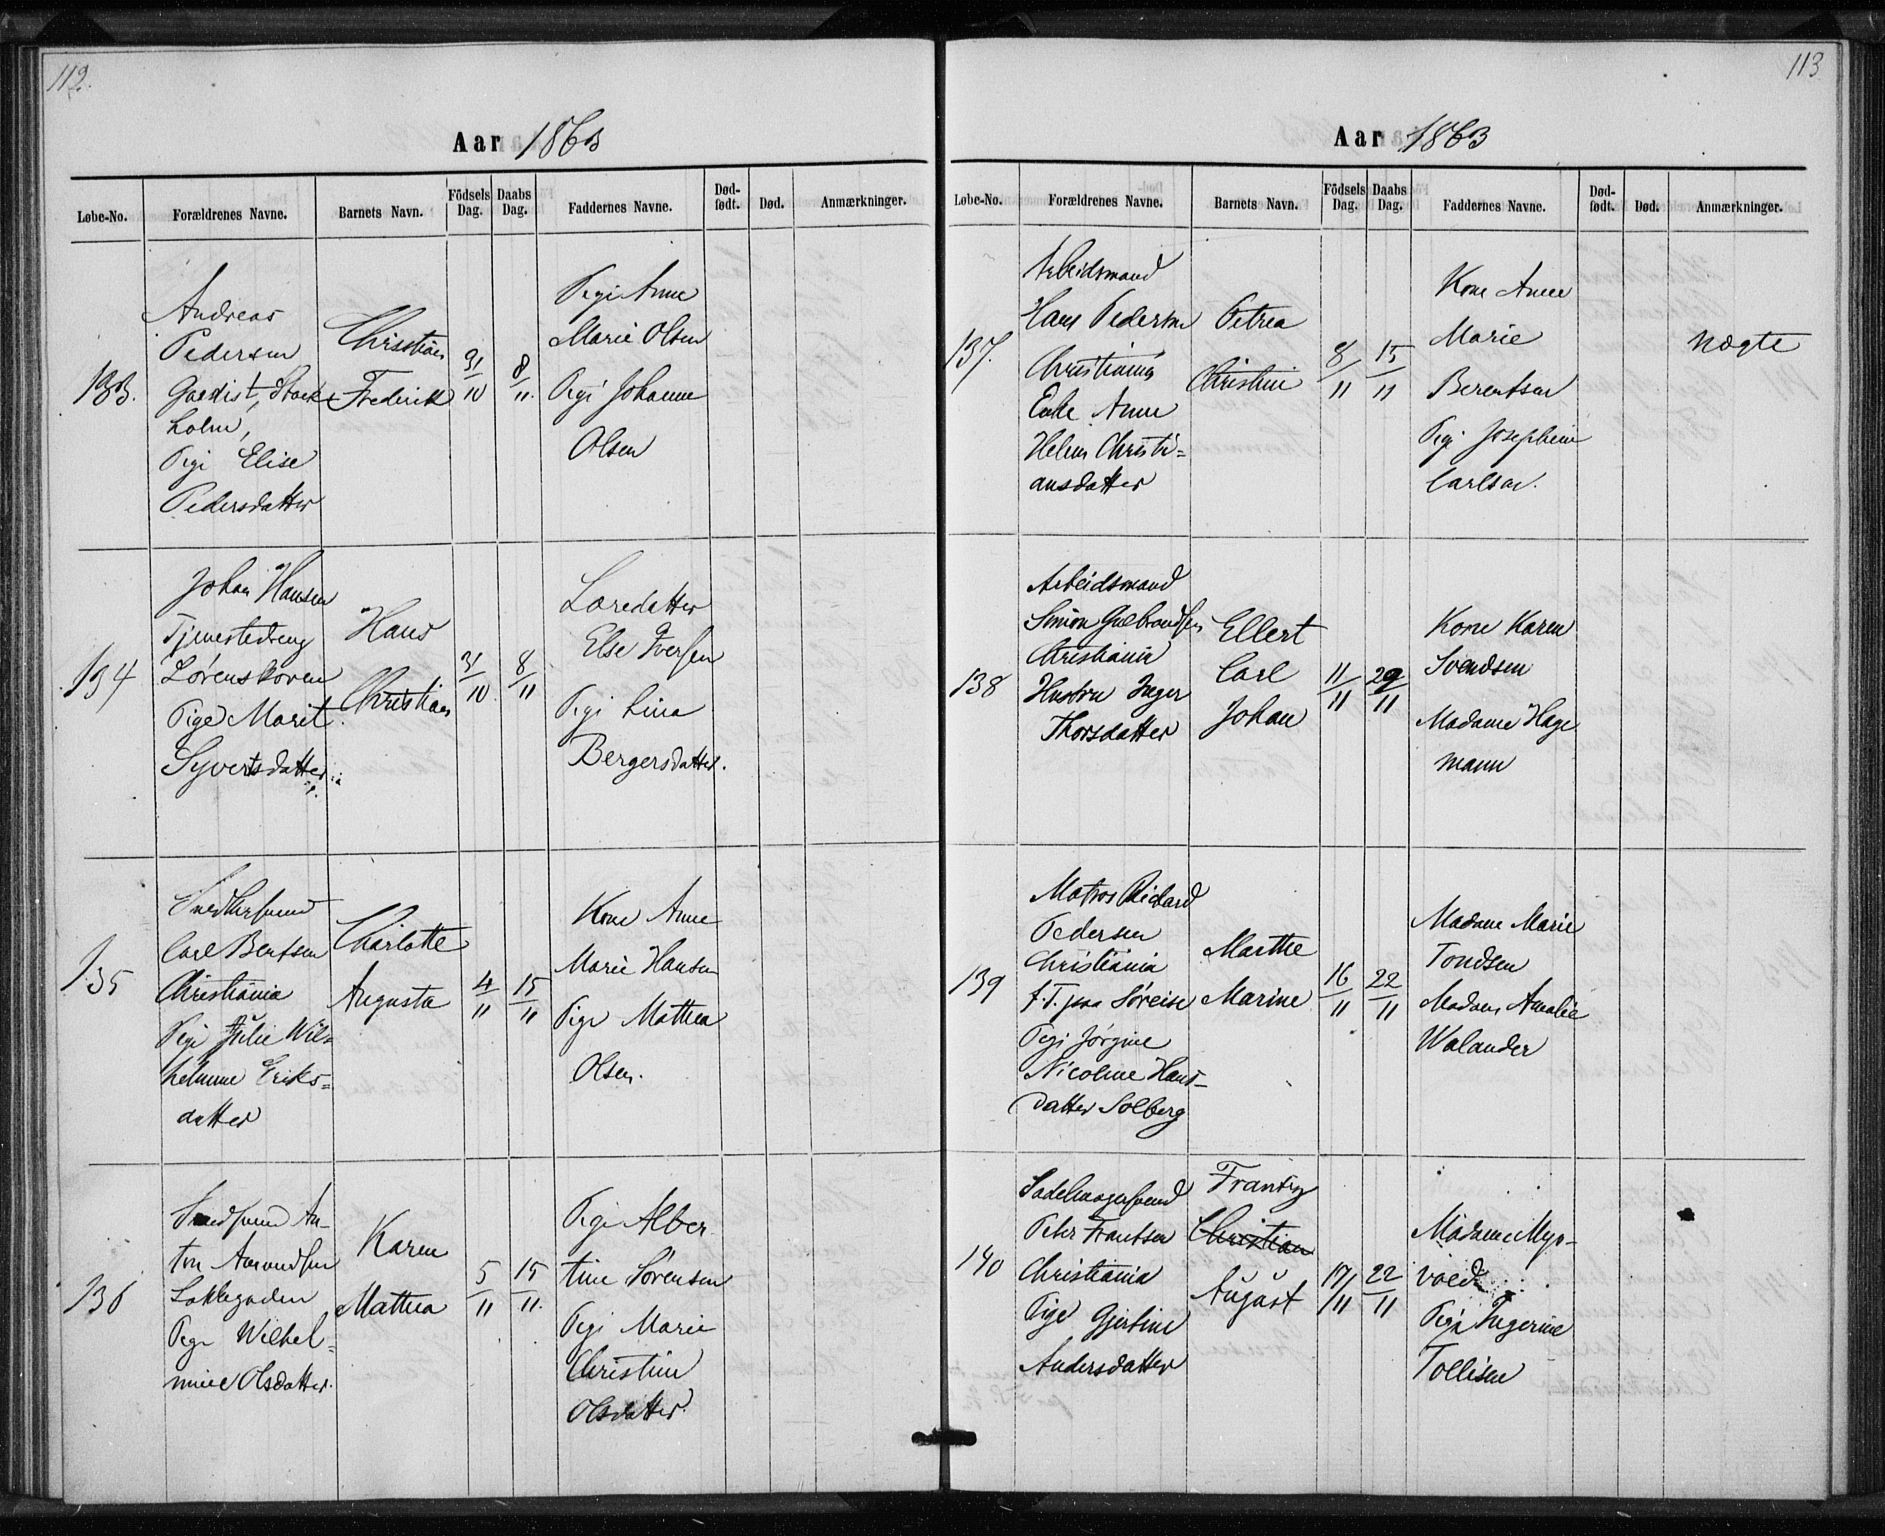 112.
Aar 1863
Løbe-No. Forældrenes Navne. Barnets Navn. Födsels Dag. Daabs Dag. Faddernes Navne. Død-født. Død. Anmærkninger.
133.
Andreas
Pedersen
Stock
holm,
Pige Elise
Pedersdatter
Christian
Frederik
31/10
8/11.
Pige Anne
Marie Olsen
Pige Johanne
Olsen
134
Johan Hansen
Tjenestedreng
Lørenskoven
Pige Marit
Syvertsdatter
Hans
Christian
31/10
8/11
Else Iversen
Pige Lina
Bergersdatter.
135
Carl Bentsen
Christiania
Pige Julie Wil=
helmine Eriks=
datter
Charlotte
Augusta
4/11
15/11
Kone Anne
Marie Hansen
Pige Mathea
Olsen.
136
Smedsvend An-
ton Amundsen
Lakkegaden
Pige Wilhel=
mine Olsdatter.
Karen
Mathea
5/11
15/11.
Pige Alber
tine Sørensen
Pige Marie
Christine
Olsdatter.
113
Aar 1863
Løbe-No. Forældrenes Navne. Barnets Navn. Födsels Dag. Daabs Dag. Faddernes Navne. Død-født. Død. Anmærkninger.
137.
Arbeidsmand
Hans Pedersen
Christiania
Enke Anne
Helene Christi=
ansdatter
Petrea
Christine
8/11
15/11
Kone Anne
Marie
Berentsen
Pige Josephine
Carlsen.
nægte
138
Arbeidsmand
Simon Gulbrandsen
Christiania
Hustru Inger
Thorsdatter
Ellert
Carl
Johan
11/11
29/11
Kone Karen
Svendsen
Madame Hage
mann
139
Matros Richard
Pedersen
Christiania
f. T. paa Søreise
Pige Jørgine
Nicoline Hans-
datter Solberg
Marthe
Marine
16/11
22/11
Madame Marie
Tondsen
Madame Amalie
Walander
140
Sadelmagersvend
Peter Frantsen
Christiania
Pige Gjertine
Andersdatter
Frantz
Christian
August
17/11
22/11
Madame Myr-
vold
Pige Ingerine
Tollisen